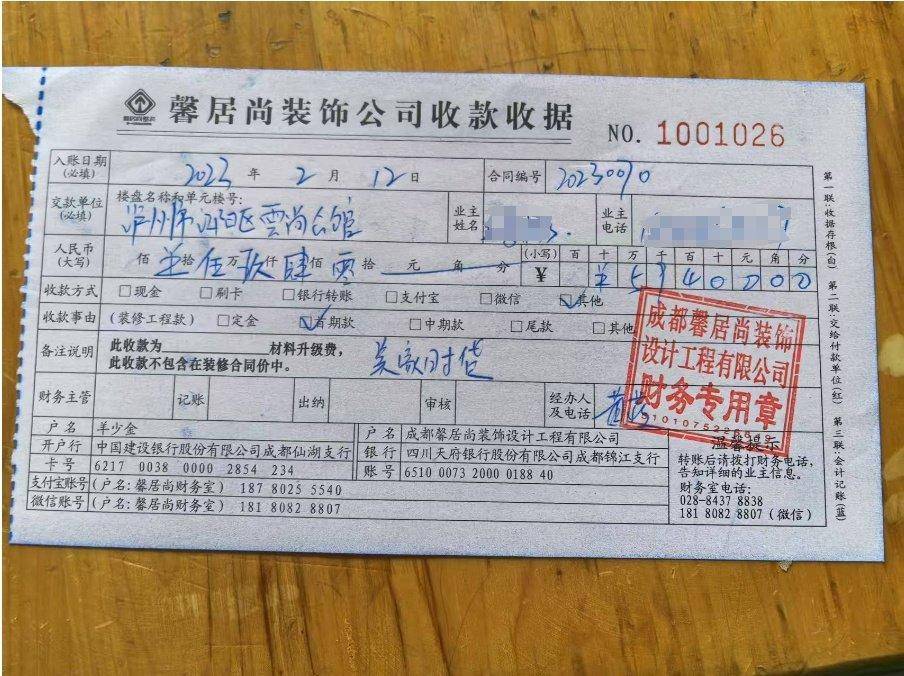 馨居尚装饰公司收款收据
NO. 1001026
入账日期(必填) 2023 年 2 月 12 日 合同编号 20230090
交款单位(必填) 楼盘名称和单元楼号: 业主姓名 业主电话
泸州市江阳区雲尚公馆
人民币(大写) 佰 拾 伍 万 玖 仟 肆 佰 零 拾 元 角 分 (小写) ¥ 百 十 万 千 百 十 元 角 分
¥ 5 9 4 0 0 0 0
收款方式 □现金 □刷卡 □银行转账 □支付宝 □微信 ☑其他
收款事由 (装修工程款) □定金 ☑首期款 □中期款 □尾款 □其他
备注说明 此收款为 材料升级费,
此收款不包含在装修合同价中。
财务主管 记账 出纳 审核 经办人及电话
成都馨居尚装饰
设计工程有限公司
财务专用章
户 名 羊少金
开户行 中国建设银行股份有限公司成都仙湖支行
卡 号 6217 0038 0000 2854 234
户 名 成都馨居尚装饰设计工程有限公司
银 行 四川天府银行股份有限公司成都锦江支行
账 号 6510 0073 2000 0188 40
支付宝账号 (户名: 馨居尚财务室) 187 8025 5540
微信账号 (户名: 馨居尚财务室) 181 8082 8807
温馨提示
转账后请拨打财务电话,
告知详细的业主信息。
财务室电话:
028-8437 8838
181 8082 8807 (微信)
第一联:收据存根(白) 第二联:交给付款单位(红) 第三联:会计记账(蓝)